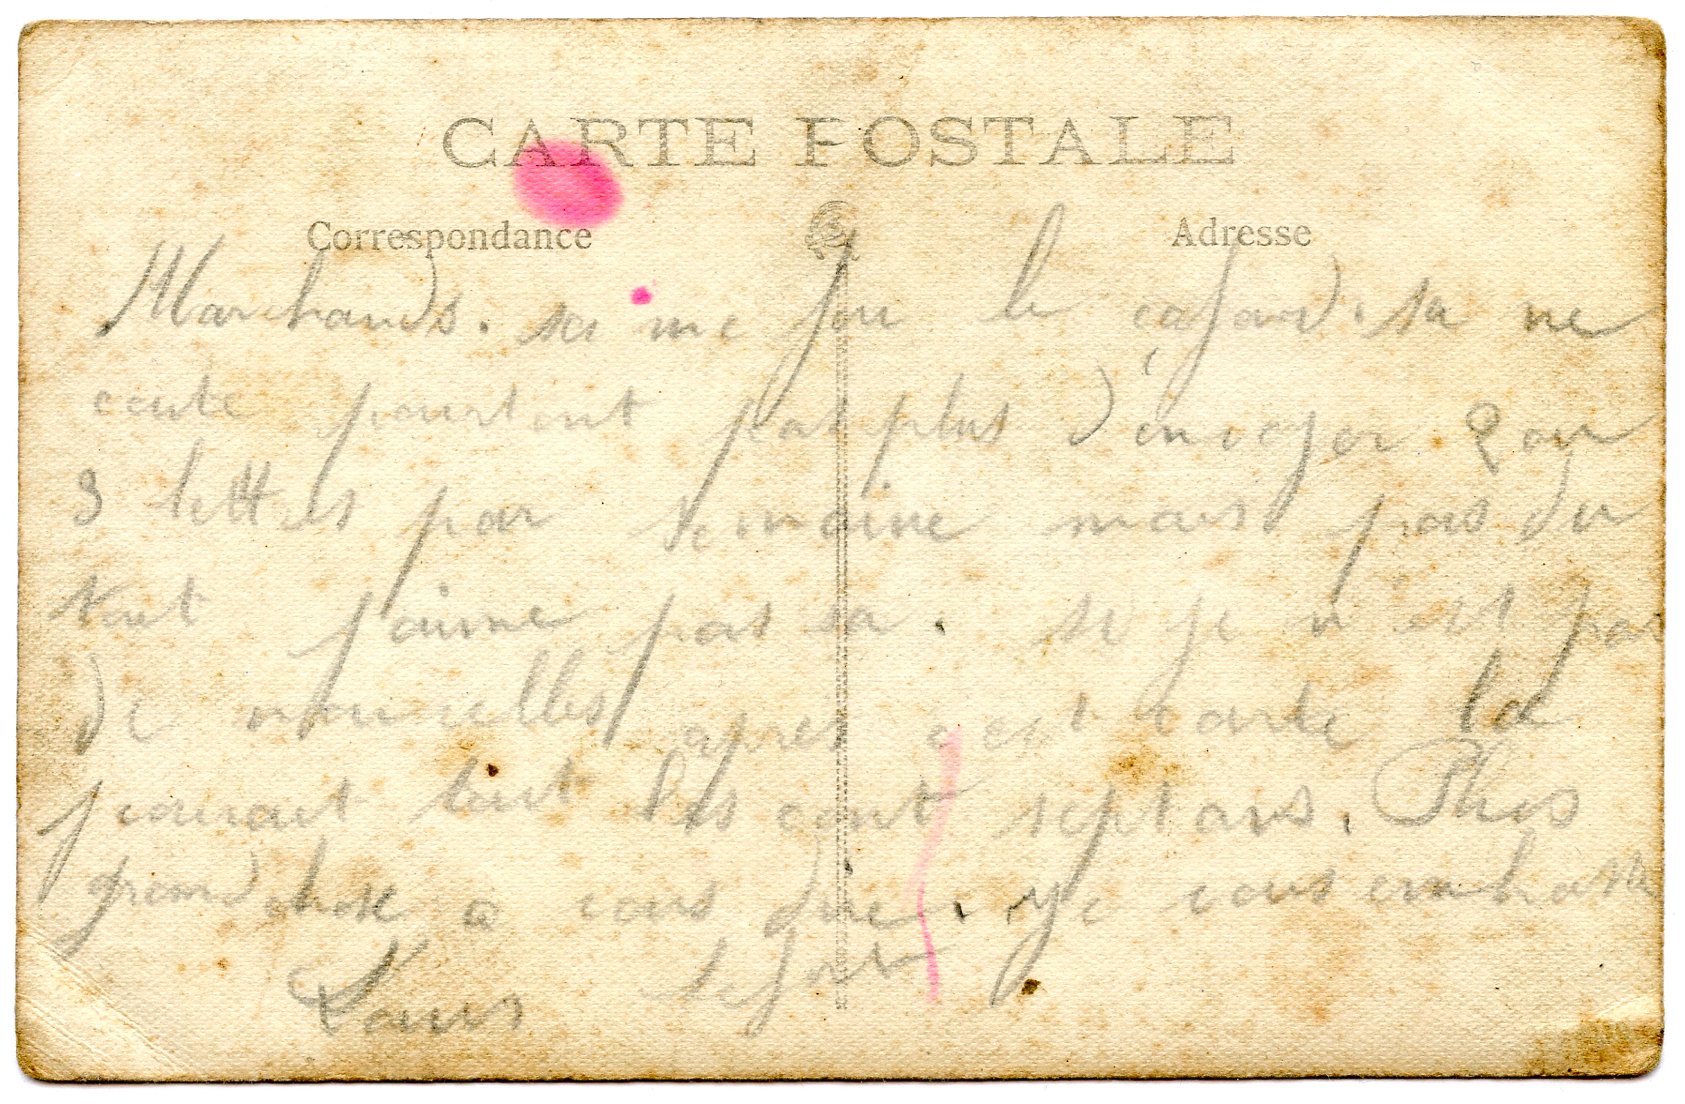 CARTE POSTALE
Correspondance
Adresse
Marchands. sa me fou le cafard. sa ne
coute pourtant pas plus d'envoyer 2 ou
3 lettres par semaine mais pas du
tout j'aime pas sa. si je n'est pas
de nouvelles apres c'est carte la
tout les septans. Plus
grand chose a vous dire. Je vous embrasse
Louis Lefort